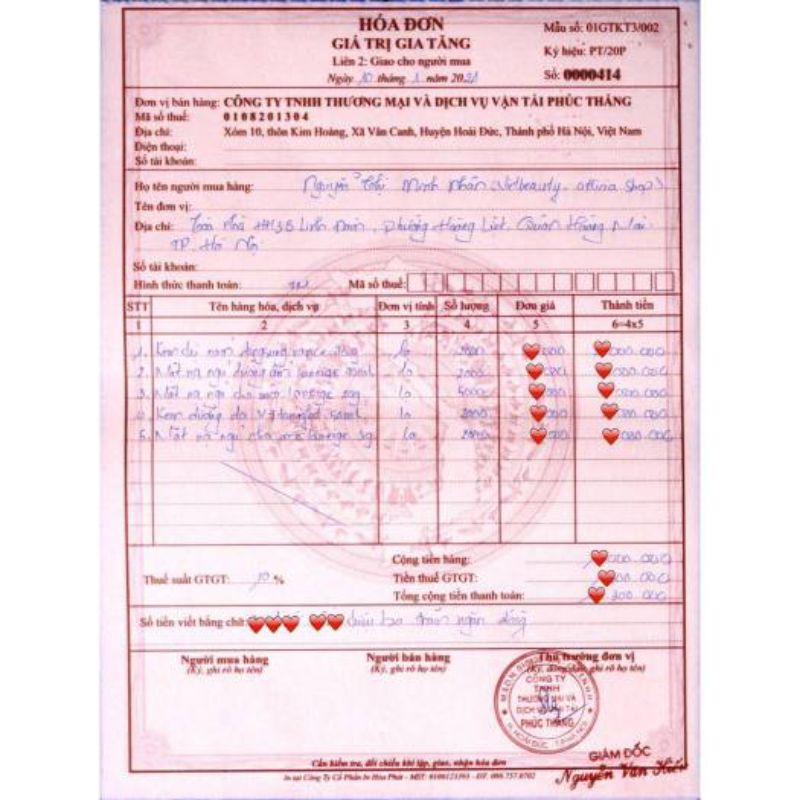 HÓA ĐƠN
GIÁ TRỊ GIA TĂNG
Liên 2: Giao cho người mua
Ngày 10 tháng 1 năm 2021
Mẫu số: 01GTKT3/002
Ký hiệu: PT/20P
Số: 0000414
Đơn vị bán hàng: CÔNG TY TNHH THƯƠNG MẠI VÀ DỊCH VỤ VẬN TẢI PHÚC THẮNG
Mã số thuế: 0108201304
Địa chỉ: Xóm 10, thôn Kim Hoàng, Xã Vân Canh, Huyện Hoài Đức, Thành phố Hà Nội, Việt Nam
Điện thoại:
Số tài khoản:
Họ tên người mua hàng: Nguyễn Thị Minh Nhân
Tên đơn vị:
Địa chỉ: Tòa nhà HH3B Linh Đàm, Phường Hoàng Liệt, Quận Hoàng Mai
TP. Hà Nội
Số tài khoản:
Hình thức thanh toán: Mã số thuế:
STT Tên hàng hóa, dịch vụ Đơn vị tính Số lượng Đơn giá Thành tiền
1 2 3 4 5 6=4x5
1. Kem 000 000.000
2. Mặt nạ ngủ dưỡng ẩm laneige 2000 000 000.000
3. Mặt nạ ngủ cho môi laneige 5000 000 000.000
4. Kem dưỡng da 50ml 000 000.000
5. Mặt nạ ngủ cho môi laneige 3g 000 000.000
Cộng tiền hàng: 000.000
Thuế suất GTGT: 10 % Tiền thuế GTGT: 000.000
Tổng cộng tiền thanh toán: 000
Số tiền viết bằng chữ: trăm ngàn đồng
Người mua hàng Người bán hàng Thủ trưởng đơn vị
(Ký, ghi rõ họ tên) (Ký, ghi rõ họ tên)
CÔNG TY
TNHH
THƯƠNG MẠI VÀ
DỊCH VỤ VẬN TẢI
PHÚC THẮNG
GIÁM ĐỐC
Nguyễn Văn Hiếu
Cần kiểm tra, đối chiếu khi lập, giao, nhận hóa đơn
In tại Công Ty Cổ Phần In Hòa Phát